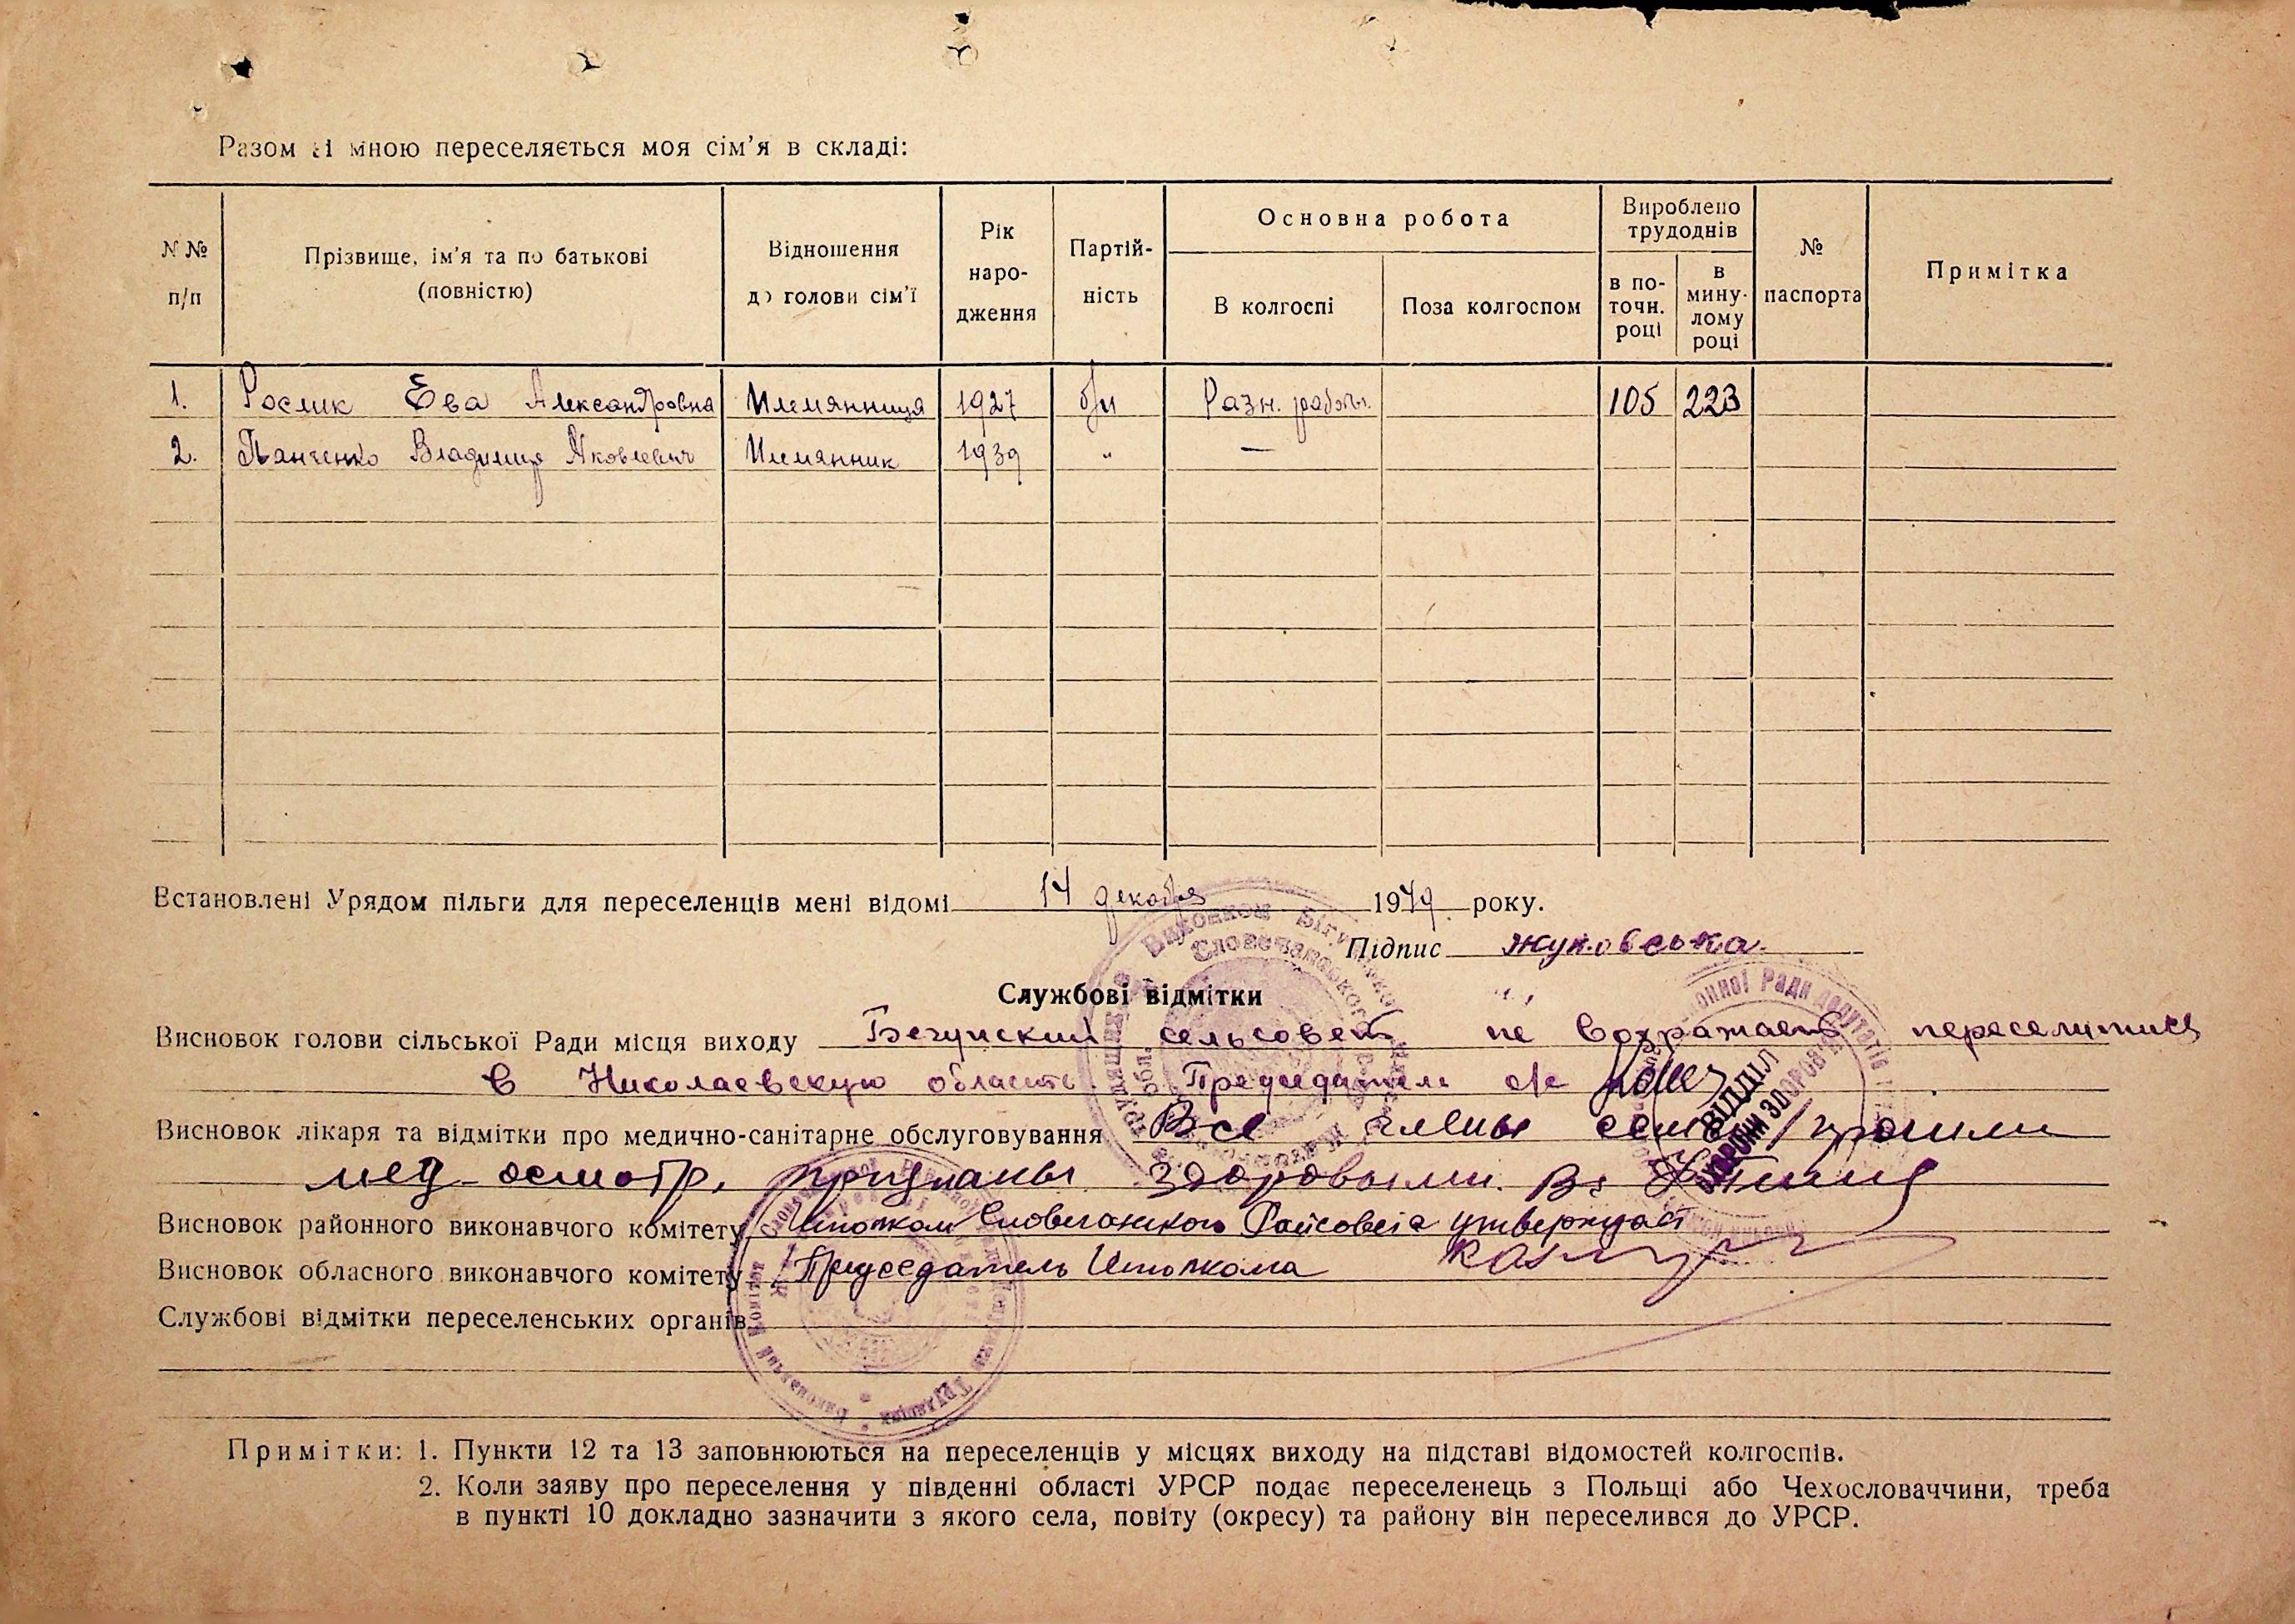 Разом зі мною переселяється моя сім'я в складі:
N №
п/п
Прізвище, ім'я та по батькові
(повністю)
Відношення
до голови сім'ї
Рік
наро-
дження
Партій-
ність
Основна робота
В колгоспі
Поза колгоспом
Вироблено
трудоднів
в по-
точн.
році
в
мину-
лому
році
№
паспорта
Примітка
1. Рослик Ева Александровна Племянница 1927 б/п Разн. работы. 105 223
2. Панченко Владимир Яковлевич Племянник 1939 " —
Встановлені Урядом пільги для переселенців мені відомі 14 декабря 1949 року.
Підпис Жуковська
Службові відмітки
Висновок голови сільської Ради місця виходу Бегунский сельсовет не возражает переселитись
в Николаевскую область. Председатель с/с
Висновок лікаря та відмітки про медично-санітарне обслуговування Все члены семьи прошли
мед-осмотр, признаны здоровыми.
Висновок районного виконавчого комітету Исполком Словечанского Райсовета утверждает
Висновок обласного виконавчого комітету Председатель Исполкома
Службові відмітки переселенських органів
ВІДДІЛ
ОХОРОНИ ЗДОРОВ'Я
Примітки: 1. Пункти 12 та 13 заповнюються на переселенців у місцях виходу на підставі відомостей колгоспів.
2. Коли заяву про переселення у південні області УРСР подає переселенець з Польщі або Чехословаччини, треба
в пункті 10 докладно зазначити з якого села, повіту (окресу) та району він переселився до УРСР.